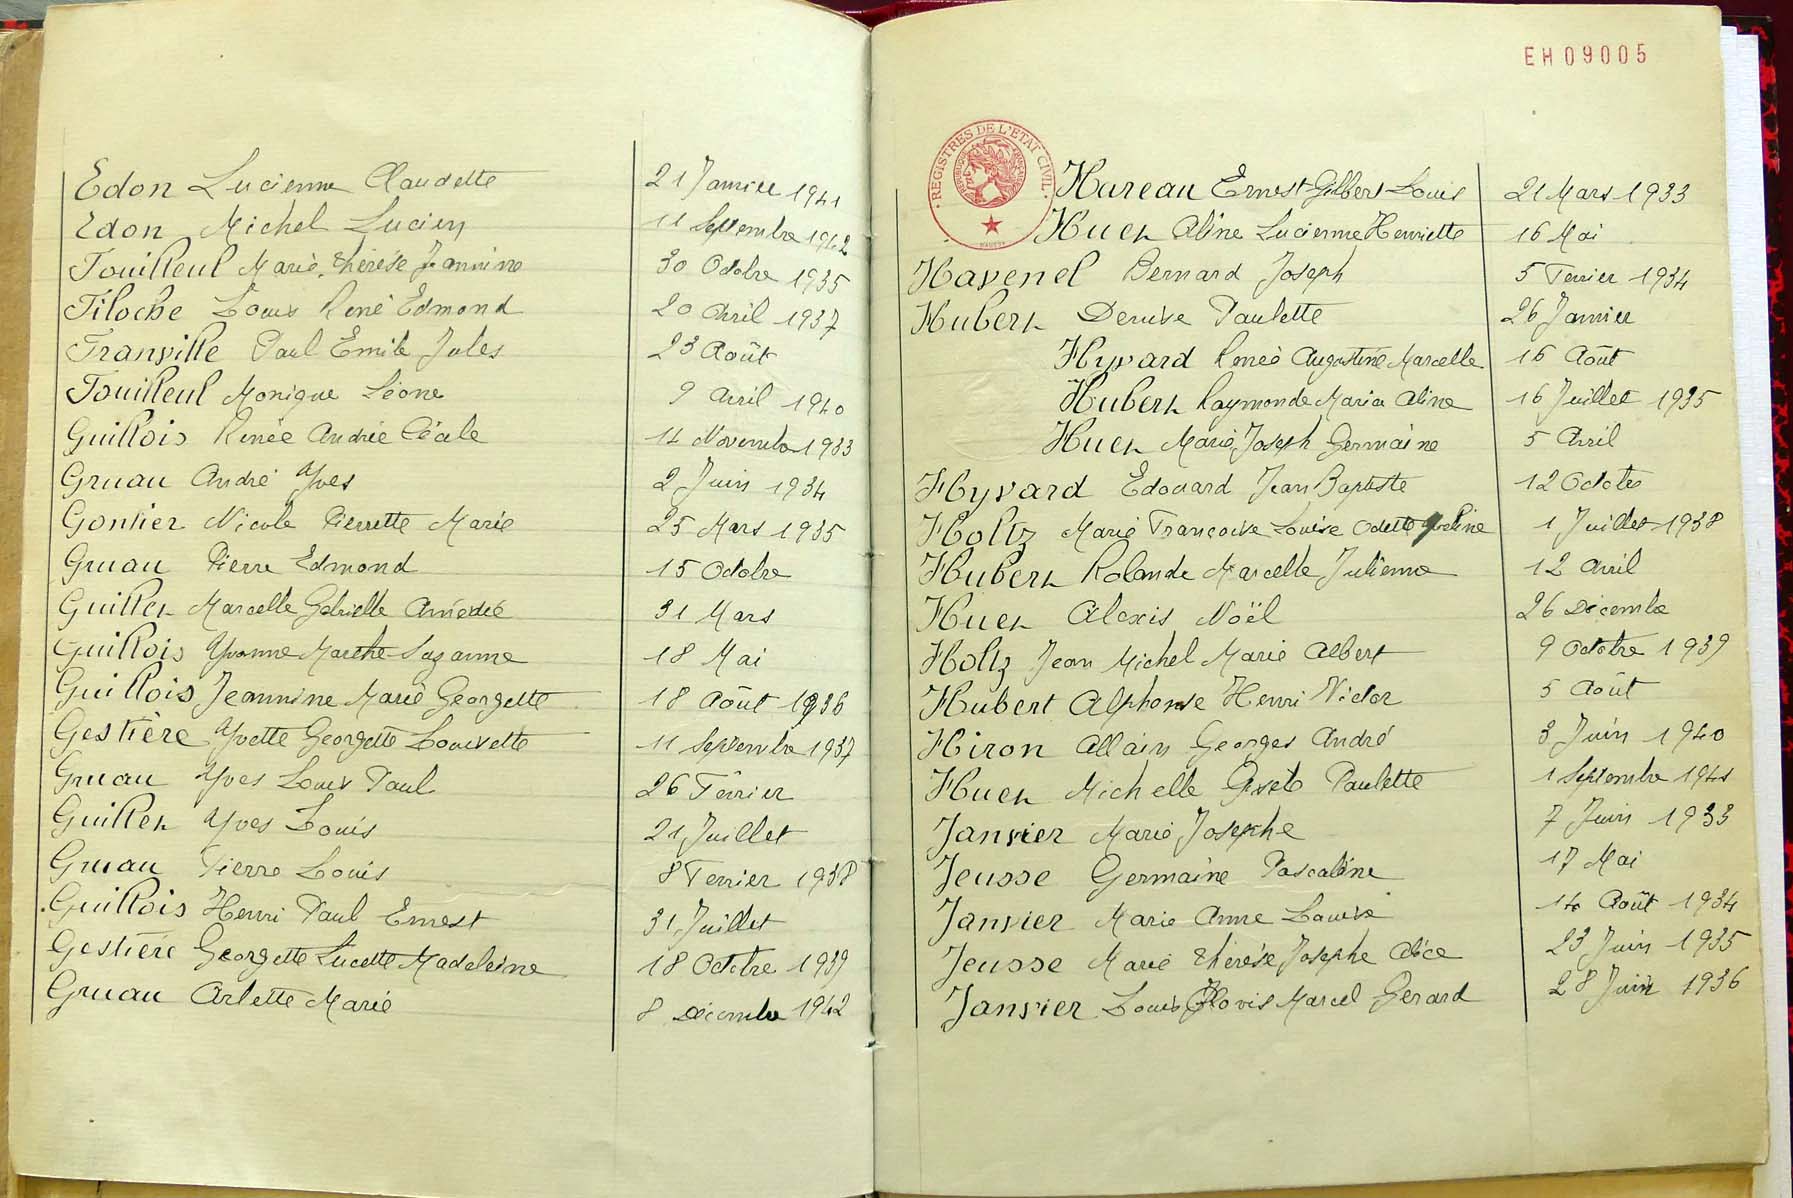 Edon Lucienne Claudette 21 Janvier 1941
Edon Michel Lucien 11 Septembre 1942
Fouilleul Marie Thérèse Jeannine 30 Octobre 1935
Filoche Louis René Edmond 20 Avril 1937
Franville Paul Emile Jules 23 Août
Fouilleul Monique Léone 9 Avril 1940
Guillois Renée Andrée Cécile 14 Novembre 1933
Gruau André Yves 2 Juin 1934
Gontier Nicole Pierrette Marie 25 Mars 1935
Gruau Pierre Edmond 15 Octobre
Guillet Marcelle Gabrielle Amédée 31 Mars
Guillois Yvonne Marthe Suzanne 18 Mai
Guillois Jeannine Marie Georgette 18 Août 1936
Gestière Yvette Georgette Louisette 11 Septembre 1937
Gruau Yves Louis Paul 26 Février
Guillet Yves Louis 21 Juillet
Gruau Pierre Louis 8 Fevrier 1938
Guillois Henri Paul Ernest 31 Juillet
Gestière Georgette Lucette Madeleine 18 Octobre 1939
Gruau Arlette Marie 8 Décembre 1942
EH09005
REGISTRES DE L'ETAT CIVIL
Hureau Ernest Gilbert Louis 21 Mars 1933
Huet Aline Lucienne Henriette 16 Mai
Havenel Bernard Joseph 5 Fevrier 1934
Hubert Denise Paulette 26 Janvier
Hyvard Renée Augustine Marcelle 16 Août
Hubert Raymonde Maria Aline 16 Juillet 1935
Huet Marie Joseph Germaine 5 Avril
Hyvard Edouard Jean Baptiste 12 Octobre
Holtz Marie Françoise Louise Odette 1 Juillet 1938
Hubert Rolande Marcelle Julienne 12 Avril
Huet Alexis Noël 26 Décembre
Holtz Jean Michel Marie Albert 9 Octobre 1939
Hubert Alphonse Henri Victor 5 Août
Hiron Allain Georges André 3 Juin 1940
Huet Michelle Paulette 1 Septembre 1941
Janvier Marie Josephe 7 Juin 1933
Jeusse Germaine Pascaline 17 Mai
Janvier Marie Anne Louise 14 Août 1934
Jeusse Marie Thérèse Josephe Alice 23 Juin 1935
Janvier Louis Clovis Marcel Gerard 28 Juin 1936